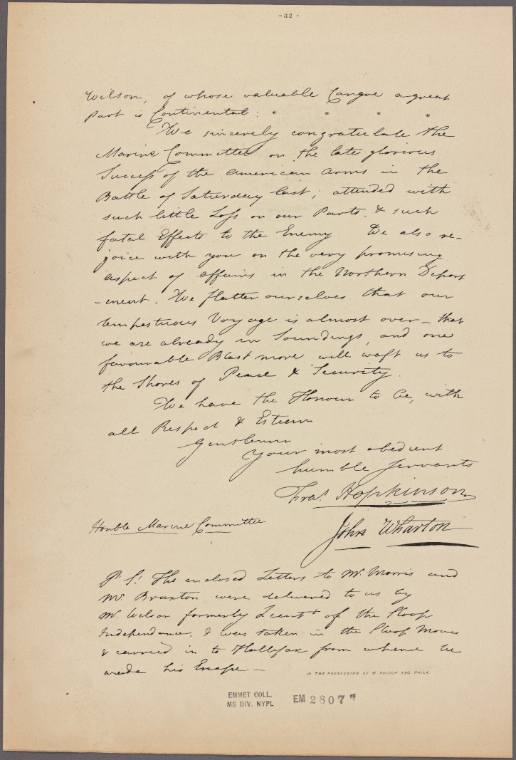 - 32 -
Wilson, of whose valuable Cargoe a great
part is Continental: " " " "
We sincerely congratulate the
Marine Committee on the late glorious
Success of the American Arms in the
Battle of Saturday last; attended with
such little Loss on our Parts & such
fatal Effects to the Enemy We also re-
joice with you on the very promising
aspect of affairs in the Northern Depart
-ment. We flatter ourselves that our
tempestuous Voyage is almost over – that
we are already in Soundings, and one
favourable Blast more will waft us to
the Shores of Peace & Security.
We have the Honour to be, with
all Respect & Esteem
Gentlemen
Your most obedient
humble Servants
Fras Hopkinson
John Wharton
Honble Marine Committee
P. S. The enclosed Letters to Mr. Morris and
Mr Braxton were delivered to us by
Mr. Wilson formerly Lieutt of the Sloop
Independance, & was taken in the Sloop
& carried in to Hallifax from whence he
made his Escape —
IN THE POSSESSION OF ESQ. PHILA.
EMMET COLL.
MS DIV. NYPL
EM 2807